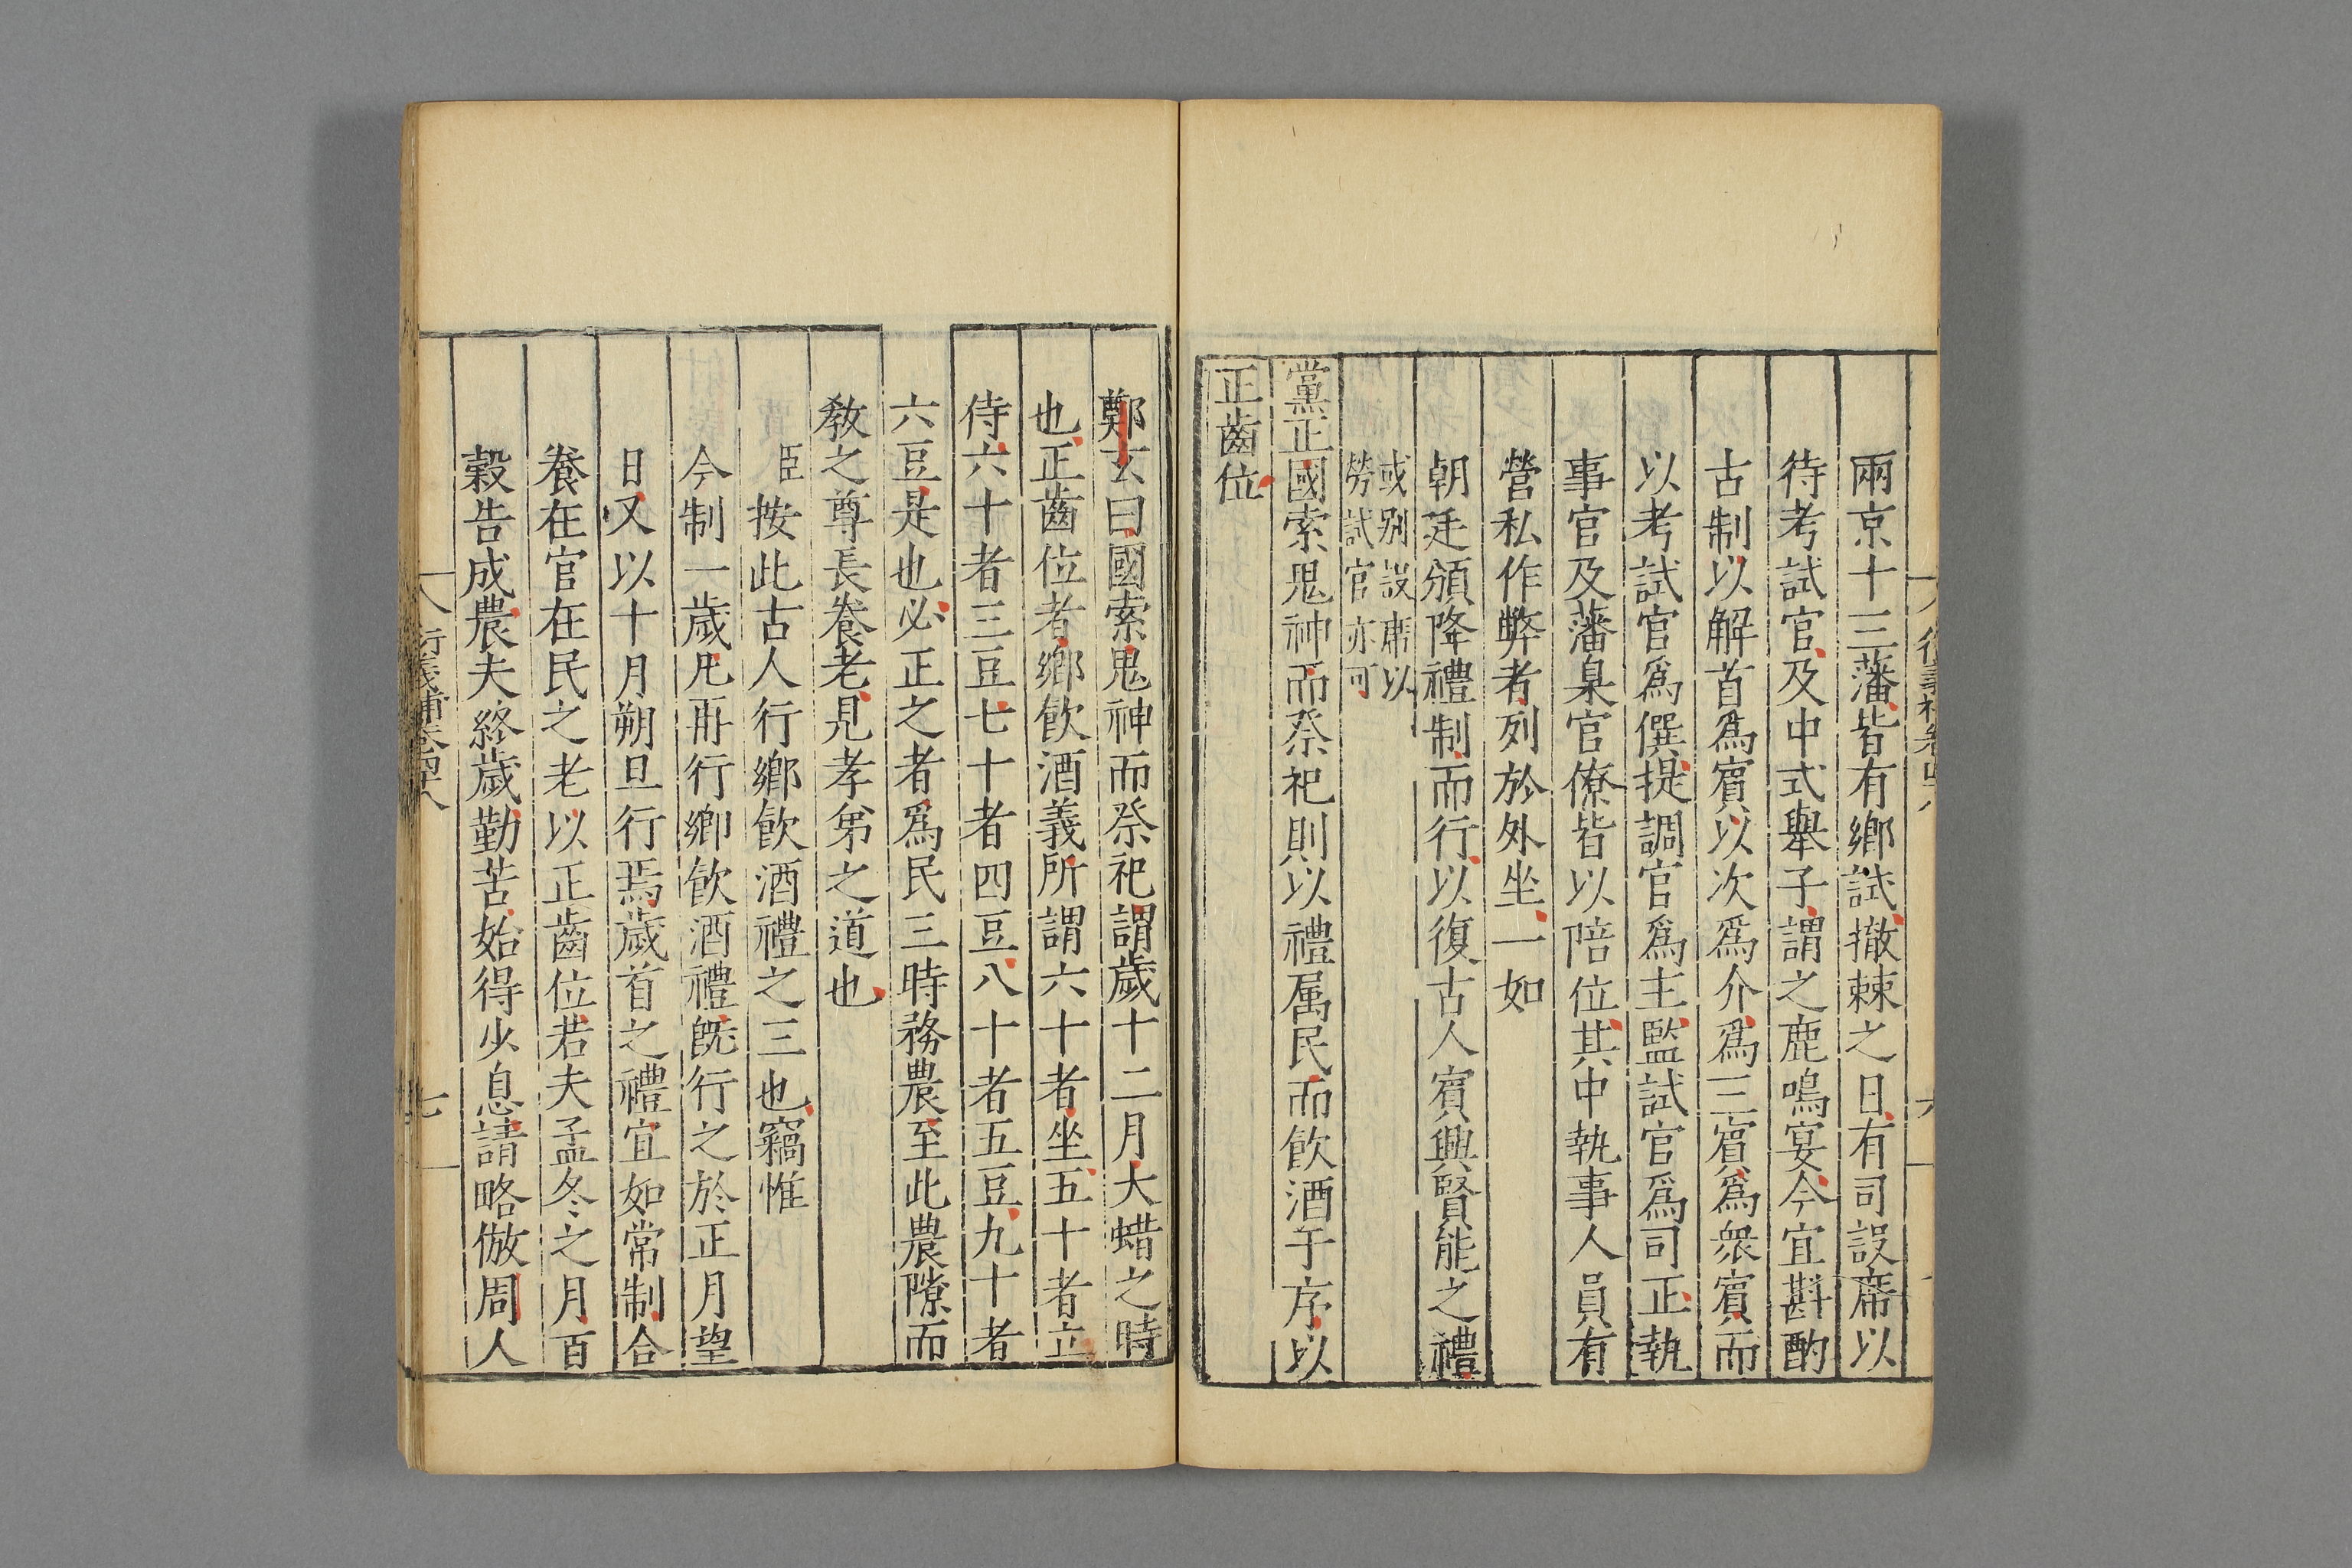 兩京十三藩皆有鄉試撤棘之日有司設席以
待考試官及中式舉子謂之鹿鳴宴今宜斟酌
古制以解首爲賓以次爲介爲三賓爲衆賓而
以考試官爲僎提調官爲主監試官爲司正執
事官及藩臬官僚皆以陪位其中執事人員有
營私作弊者列於外坐一如
朝廷頒降禮制而行以復古人賓興賢能之禮
或别設席以
勞試官亦可
黨正國索鬼神而祭祀則以禮属民而飲酒于序以
正齒位
鄭玄曰國索鬼神而祭祀謂歲十二月大蜡之時
也正齒位者鄉飲酒義所謂六十者坐五十者立
侍六十者三豆七十者四豆八十者五豆九十者
六豆是也必正之者爲民三時務農至此農隙而
教之尊長養老見孝弟之道也
臣按此古人行鄉飲酒禮之三也竊惟
今制一歲凡再行鄉飲酒禮既行之於正月望
日又以十月朔旦行焉歲首之禮宜如常制合
養在官在民之老以正齒位若夫孟冬之月百
穀告成農夫終歲勤苦始得少息請略倣周人
衍義補卷四十八
七